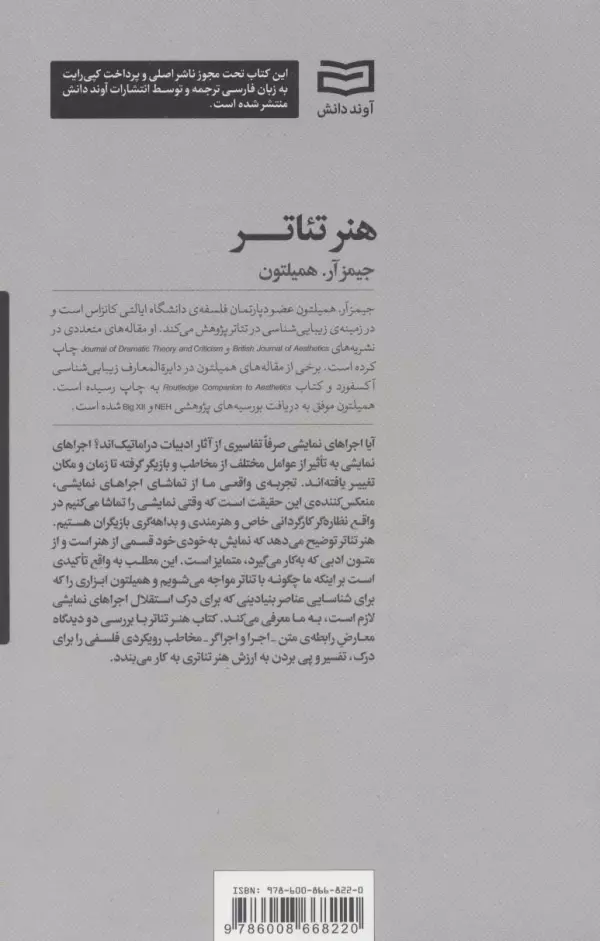 این کتاب تحت مجوز ناشر اصلی و پرداخت کپی‌رایت
به زبان فارسی ترجمه و توسط انتشارات آوند دانش
منتشر شده است.
آوند دانش
هنر تئاتـــر
جیمز آر. همیلتون
جیمز آر. همیلتون عضو دپارتمان فلسفه‌ی دانشگاه ایالتی کانزاس است و
در زمینه‌ی زیبایی‌شناسی در تئاتر پژوهش می‌کند. او مقاله‌های متعددی در
نشریه‌های British Journal of Aesthetics و Journal of Dramatic Theory and Criticism چاپ
کرده است. برخی از مقاله‌های همیلتون در دایرةالمعارف زیبایی‌شناسی
آکسفورد و کتاب Routledge Companion to Aesthetics به چاپ رسیده است.
همیلتون موفق به دریافت بورسیه‌های پژوهشی NEH و Big XII شده است.
آیا اجراهای نمایشی صرفاً تفاسیری از آثار ادبیات دراماتیک‌اند؟ اجراهای
نمایشی به تأثیر از عوامل مختلف از مخاطب و بازیگر گرفته تا زمان و مکان
تغییر یافته‌اند. تجربه‌ی واقعی ما از تماشای اجراهای نمایشی،
منعکس‌کننده‌ی این حقیقت است که وقتی نمایشی را تماشا می‌کنیم در
واقع نظاره‌گر کارگردانی خاص و هنرمندی و بداهه‌گری بازیگران هستیم.
هنر تئاتر توضیح می‌دهد که نمایش به‌خودی‌خود قسمی از هنر است و از
متون ادبی که به‌کار می‌گیرد، متمایز است. این مطلب به واقع تأکیدی
است بر اینکه ما چگونه با تئاتر مواجه می‌شویم و همیلتون ابزاری را که
برای شناسایی عناصر بنیادینی که برای درک استقلال اجراهای نمایشی
لازم است، به ما معرفی می‌کند. کتاب هنر تئاتر با بررسی دو دیدگاه
معارض رابطه‌ی متن ـ اجرا و اجراگر ـ مخاطب رویکردی فلسفی را برای
درک، تفسیر و پی بردن به ارزش هنر تئاتری به کار می‌بندد.
ISBN: 978-600-866-822-0
9 786008 668220